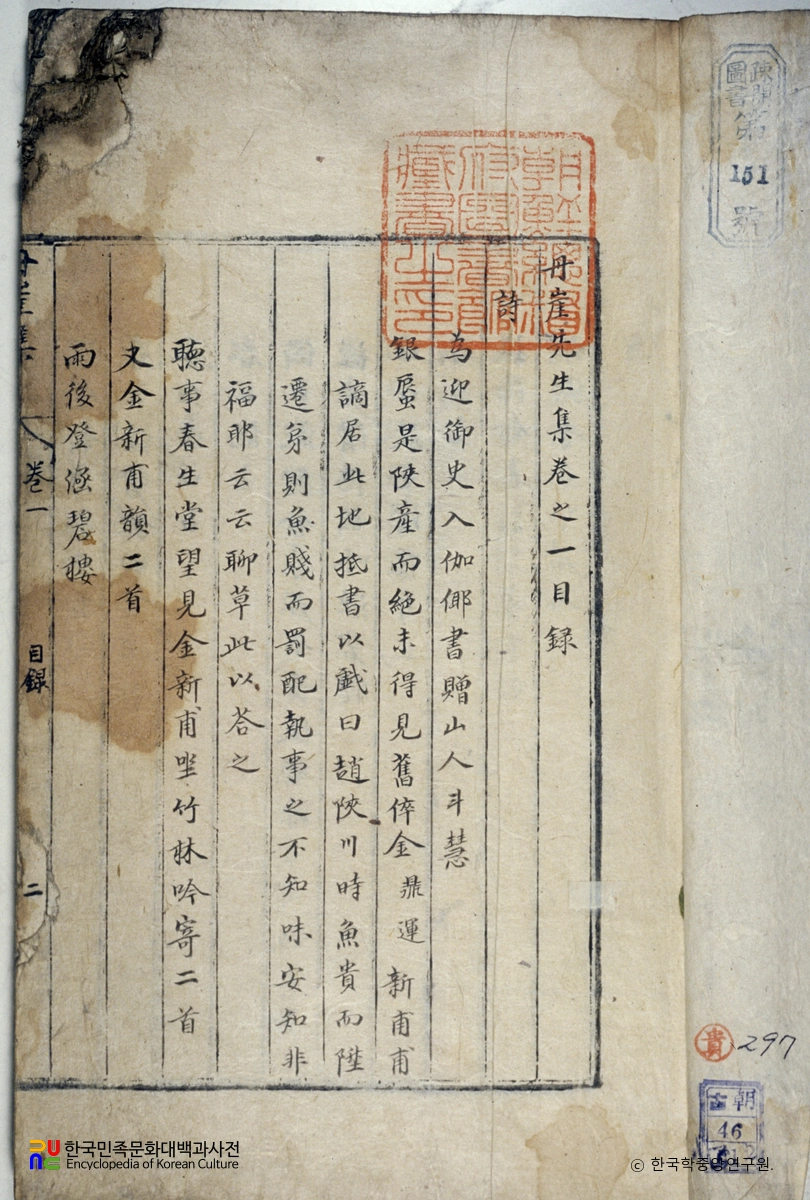 疎開
圖書
第
151
號
朝鮮總督
府圖書館
藏書之印
丹崖先生集卷之一目録
詩
為迎御史入伽倻書贈山人斗慧
銀蜃是陜產而絶未得見舊倅金鼎運新甫甫
謫居此地抵書以戱曰趙陜川時魚貴而陞
遷則魚賤而罰配執事之不知味安知非
福耶云云聊草此以荅之
聽事春生堂望見金新甫坐竹林吟寄二首
次金新甫韻二首
雨後登涵碧樓
丹崖集
卷一
目録
二
貴 297
朝
古
46
한국민족문화대백과사전
Encyclopedia of Korean Culture
© 한국학중앙연구원.